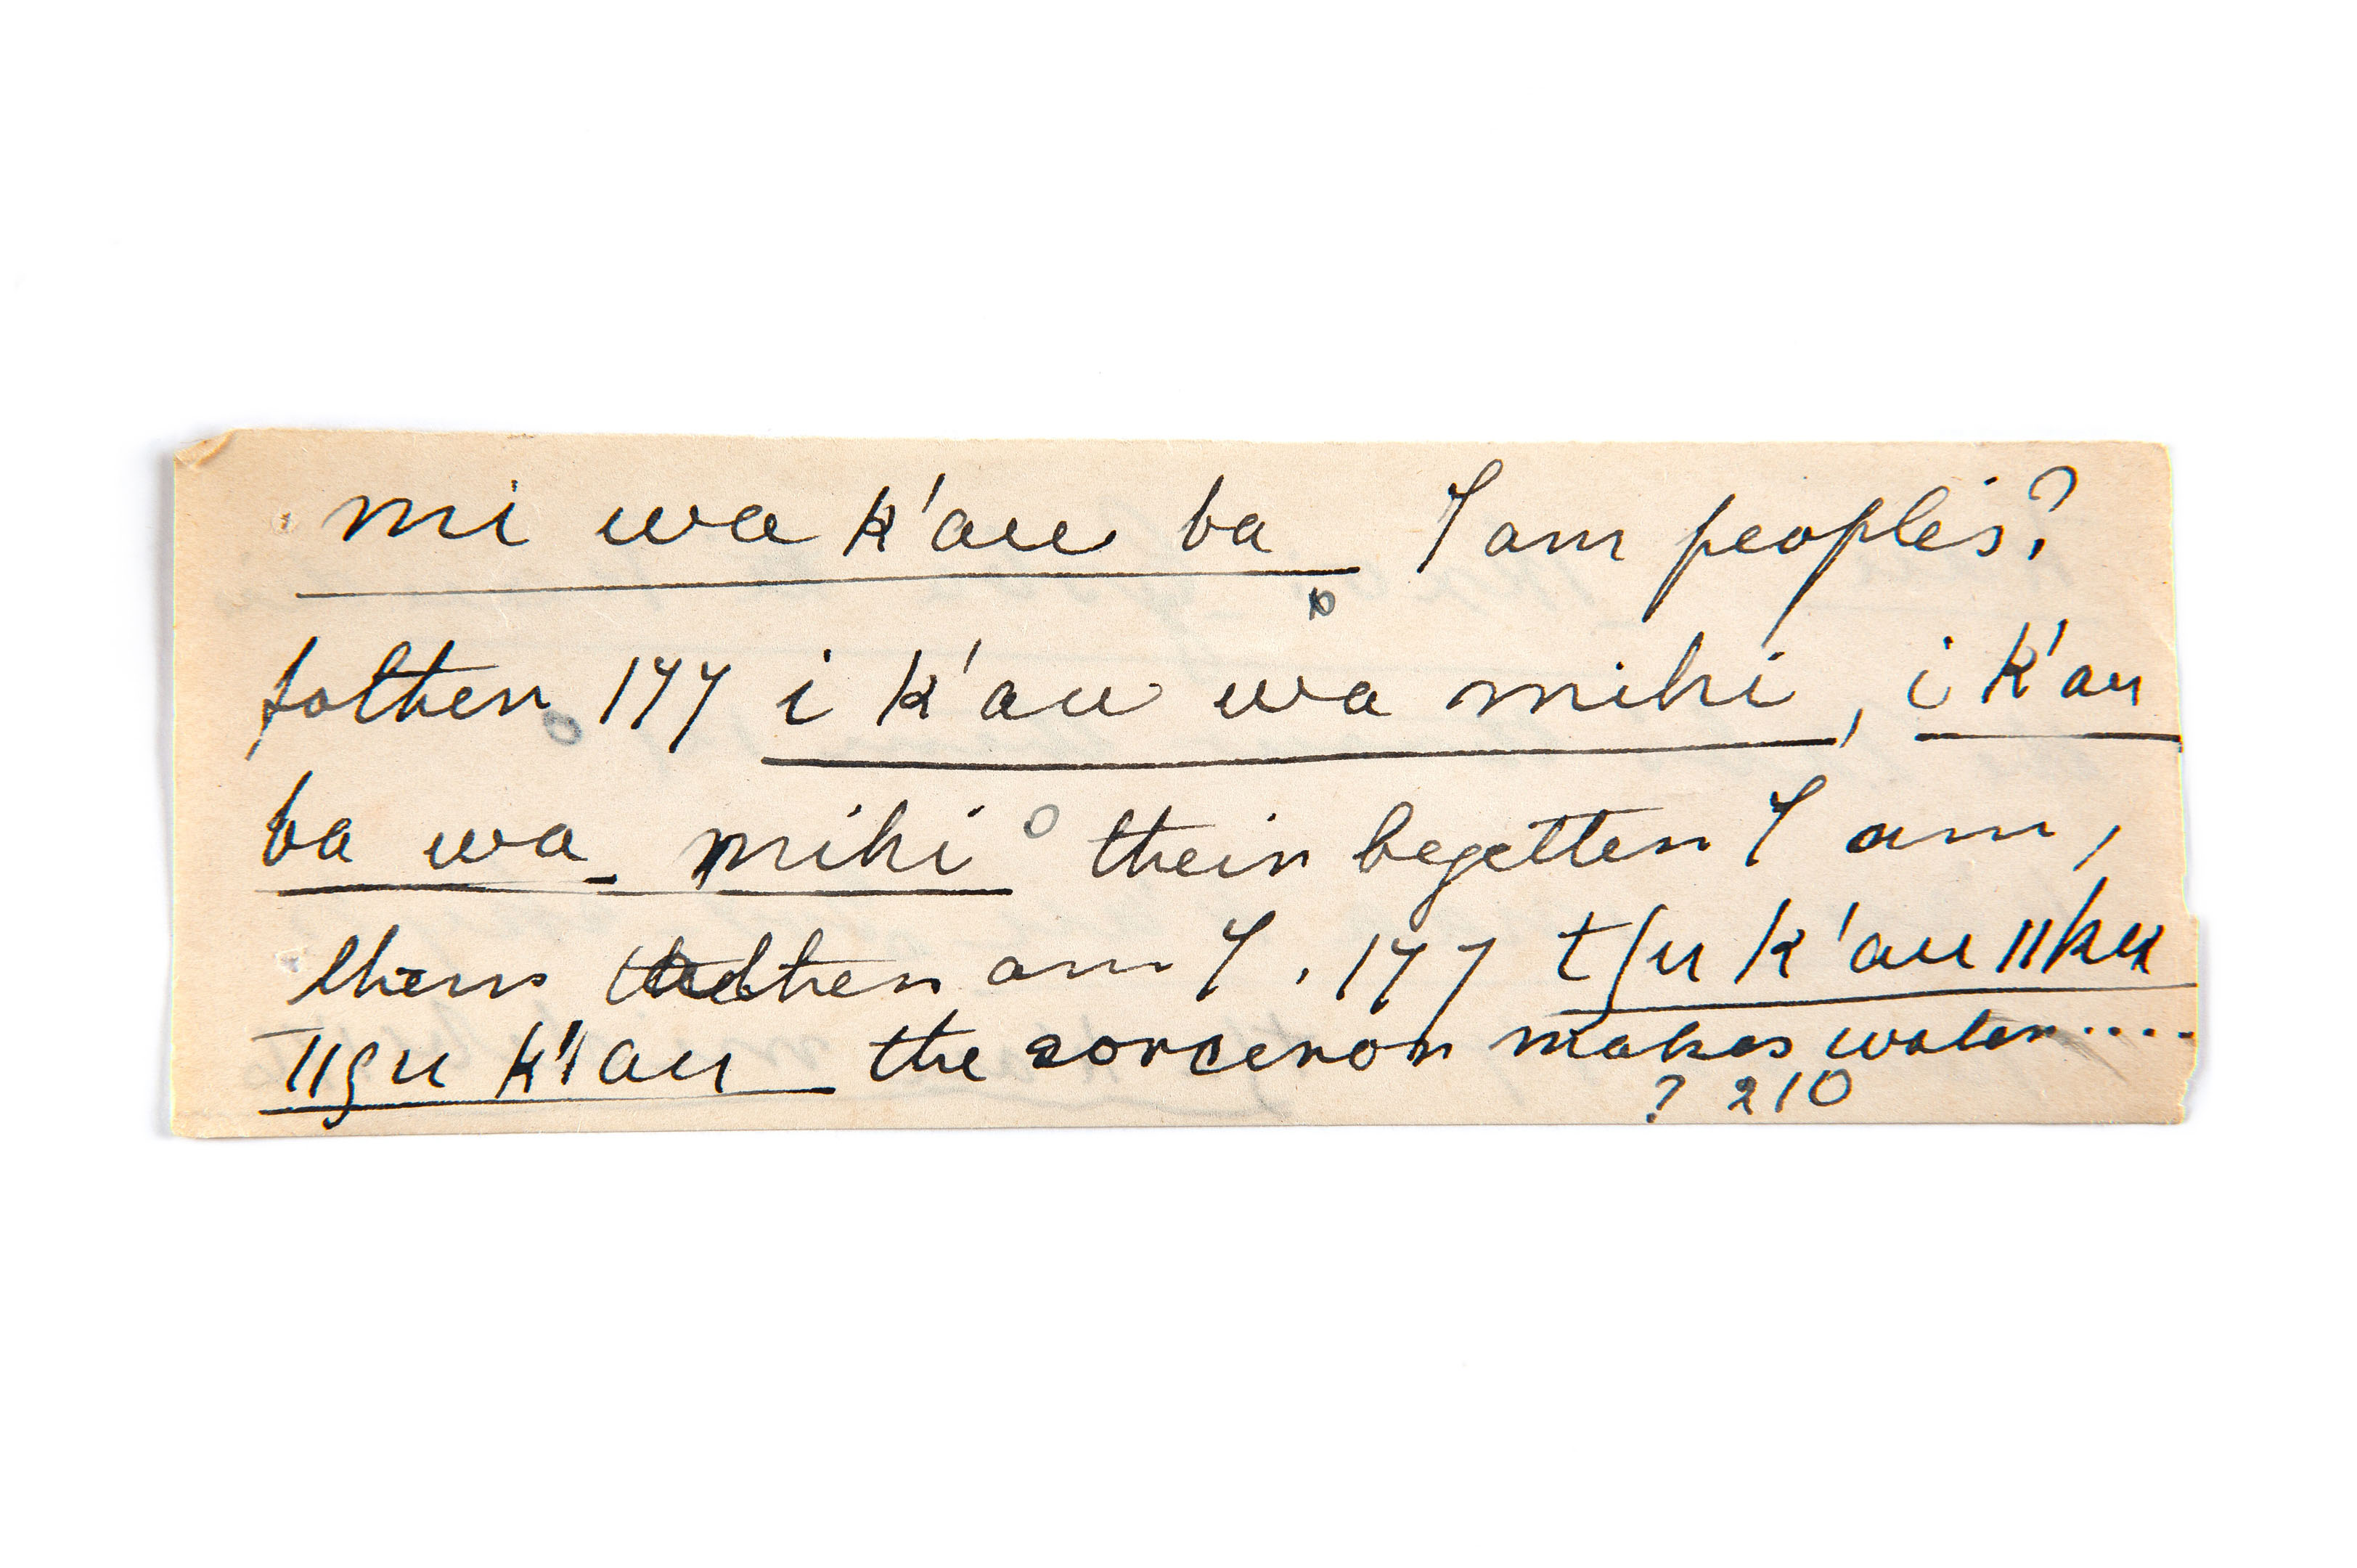 mi wa k'au ba I am people's?
father 177 i k'au wa mihi, i k'au
ba wa mihi their begetter I am,
their father am I. 177 tʃu k'au ǁku
ǁgu k'ǀau the sorceror makes water....
? 210